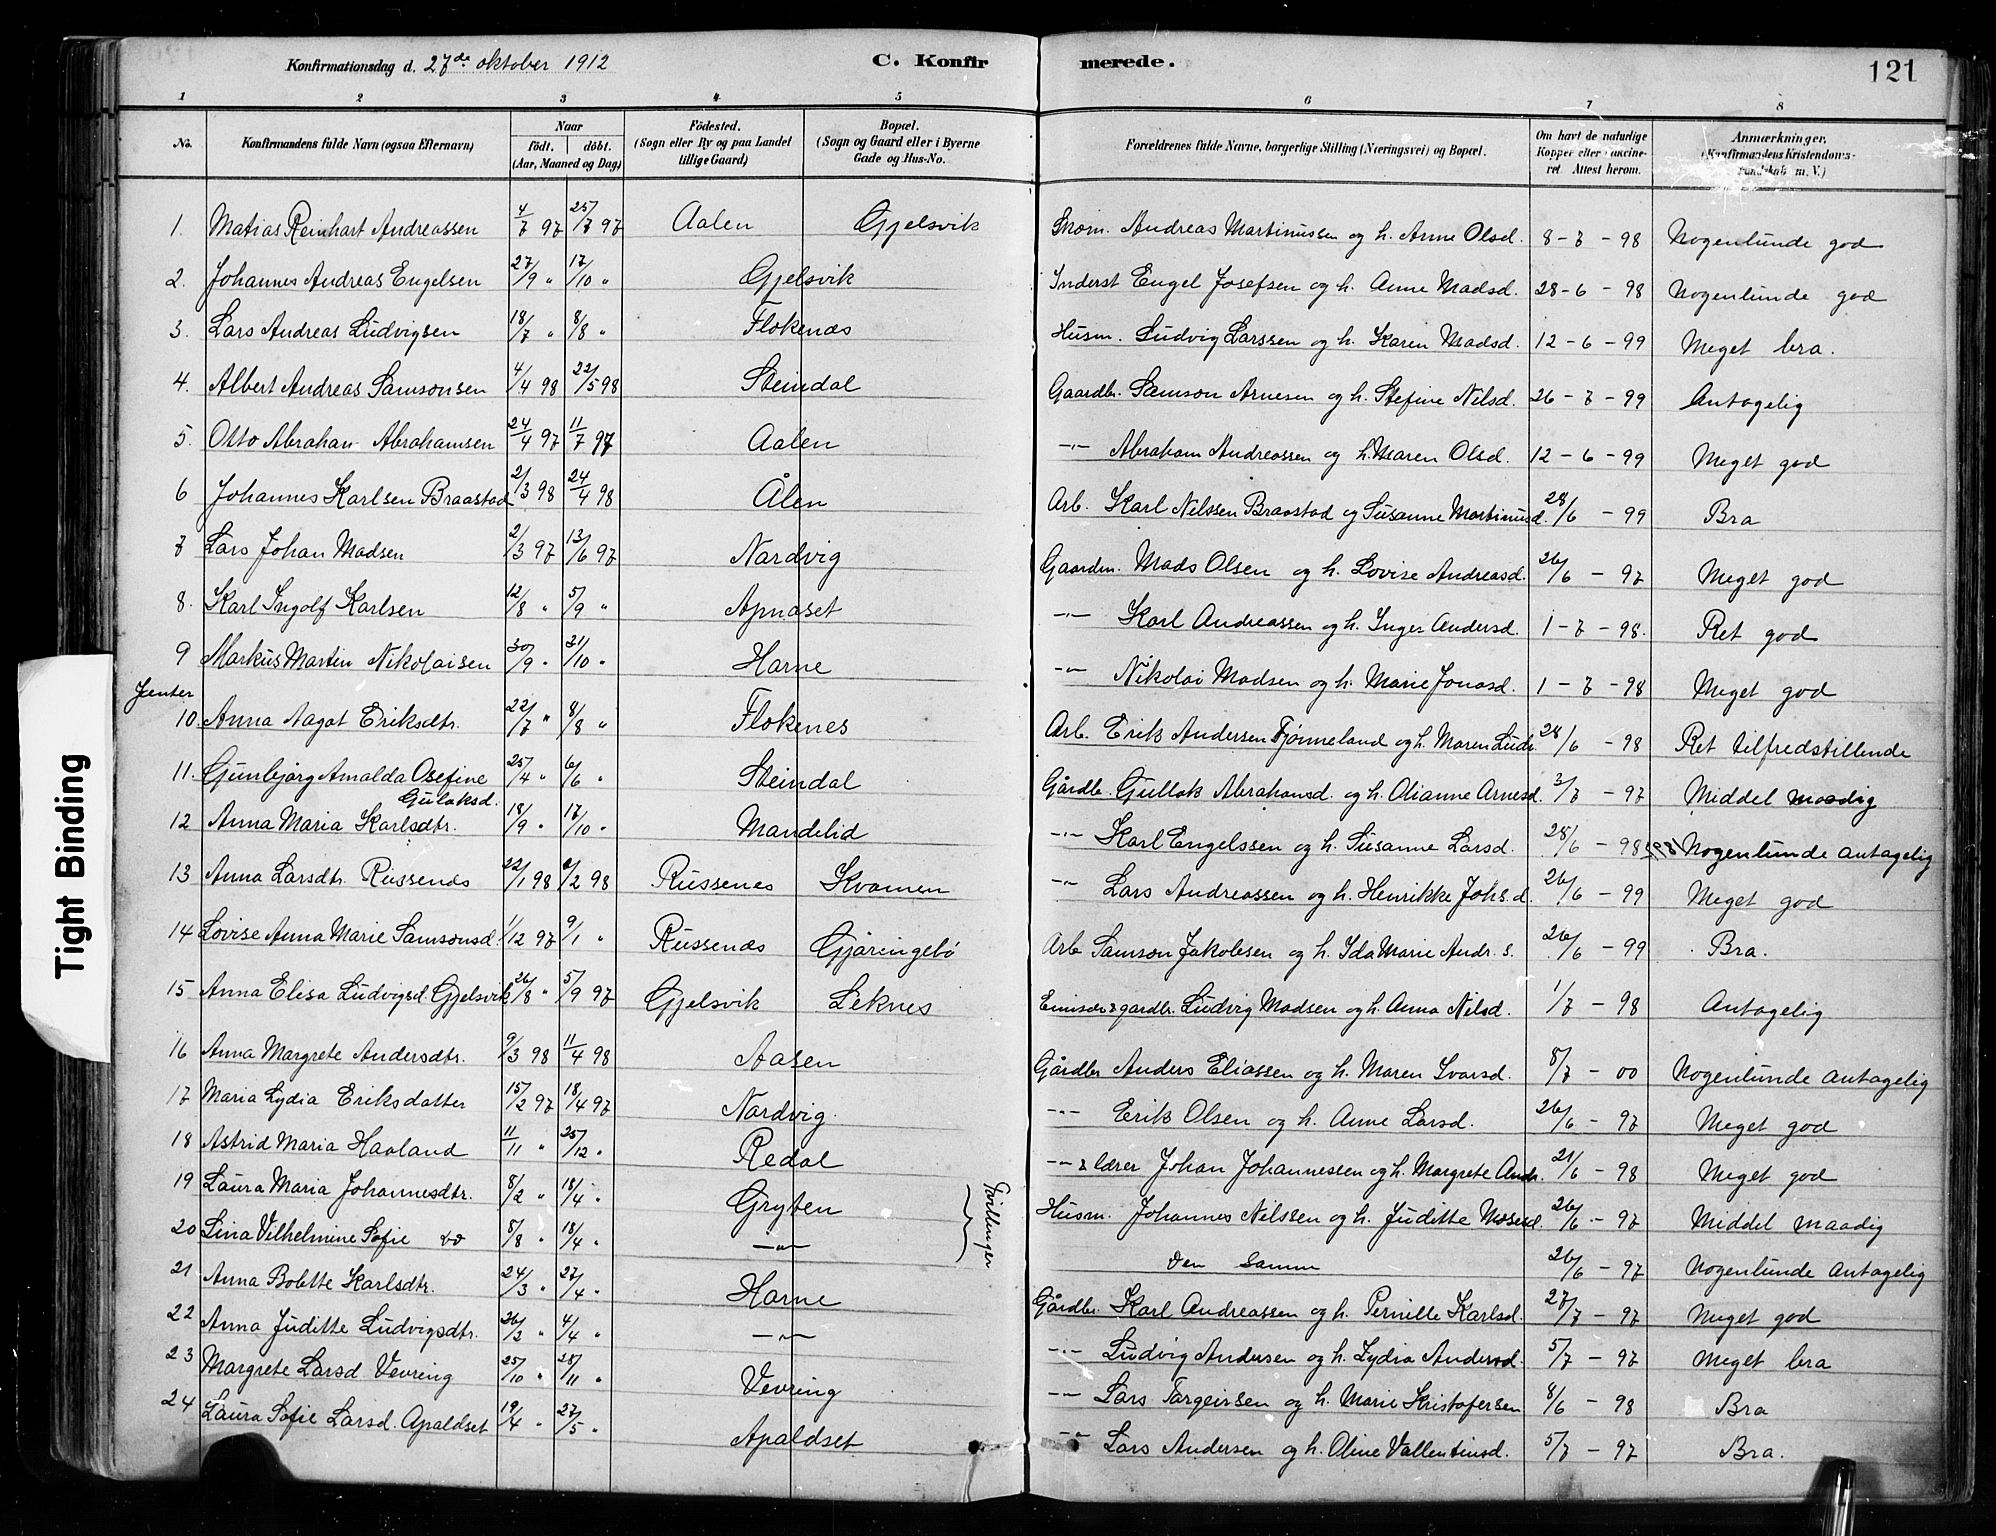 Konfirmationsdag d. 27de oktober 1912 C. Konfir merede. 121
1 2 3 4 5 6 7 8
No. Konfirmandens fulde Navn (ogsaa Efternavn) Naar født. døbt. (Aar, Maaned og Dag) Födested. (Sogn eller By og paa Landet tillige Gaard) Bopæl. (Sogn og Gaard eller i Byerne Gade og Hus-No. Forældrenes fulde Navne, borgerlige Stilling (Næringsvei) og Bopæl. Om havt de naturlige Kopper eller vaccineret Attest herom. Anmærkninger, (Konfirmandens Kristendomskundskab m. V.)
1. Matias Reinhart Andreassen 4/7 97 25/7 97 Aalen Gjelsvik Andreas Martinussen og h. Anne Olsd. 8-7-98 Nogenlunde god
2. Johannes Andreas Engelsen 27/9 " 17/10 " Gjelsvik Inderst Engel Josefsen og h. Anne Madsd. 28-6-98 Nogenlunde god
3. Lars Andreas Ludvigsen 18/7 " 8/8 " Flokenæs Husm. Ludvig Larssen og h. Karen Madsd. 12-6-99 Meget bra.
4. Albert Andreas Samsonsen 4/4 98 22/5 98 Steindal Gaardbr. Samson Arnesen og h. Stefine Nilsd. 26-7-99 Antagelig
5. Otto Abrahan Abrahamsen 24/4 97 11/7 97 Aalen -"- Abraham Andreassen og h. Maren Olsd. 12-6-99 Meget god
6 Johannes Karlsen Braastad 2/3 98 24/4 98 Ålen Arb. Karl Nilssen Braastad og Susanne Martinusd. 28/6 - 99 Bra
7 Lars Johan Madsen 2/3 97 13/6 97 Nardvig Gaardm. Mads Olsen og h. Lovise Andreasd. 26/6 - 97 Meget god
8. Karl Ingolf Karlsen 12/8 " 5/9 " Apnaset -"- Karl Andreassen og h. Inger Andersd. 1-7-98. Ret god
9 Markus Martin Nikolaisen 30/9 " 31/10 " Harne -"- Nikolai Madsen og h. Marie Jonasd. 1-7-98 Meget god
Jenter
10. Anna Aagot Eriksdtr. 22/7 " 8/8 " Flokenes Arb. Erik Andersen Tjønneland og h. Maren Ludv. 28/6 - 98 Ret tilfredstillende
11. Gunbjørg Amalda Osefine 25/4 " 6/6 " Steindal Gårdbr. Gullak Abrahamsd. og h. Olianne Arnesd. 3/7 - 97 Middel maadig
Gulaksd.
12 Anna Maria Karlsdtr. 18/9 " 17/10 " Mandelid -"- Karl Engelssen og h. Susanne Larsd. 28/6 - 98 Nogenlunde antagelig
13 Anna Larsdtr. Russenes 22/1 98 2/2 98 Russenes Kvamen -"- Lars Andreassen og h. Henrikke Johs.d. 26/6 - 99 Meget god
14 Lovise Anna Marie Samsonsd 1/12 97 9/1 " Russenæs Gjäringebö Arb Samson Jakobsen og h. Ida Marie Andr. s. 26/6 - 99 Bra.
15 Anna Elisa Ludvigsd. Gjelsvik 26/8 " 5/9 97 Gjelsvik Leknes gardbr. Ludvig Madsen og h. Anna Nilsd. 1/7 - 98 Antagelig
16 Anna Margrete Andersdtr. 9/3 98 11/4 98 Aasen Gårdbr Anders Eliassen og h. Maren Ivarsd. 8/7 - 00 Nogenlunde antagelig
17 Maria Lydia Eriksdatter 15/2 97 18/4 97 Nardvig. -"- Erik Olsen og h. Anne Larsd. 26/6 - 97 Meget god
18 Astrid Maria Haaland 11/11 " 25/12 " Redal -"- & lærer Johan Johannessen og h. Margrete Andr. 21/6 - 98 Meget god
19 Laura Maria Johannesdtr. 8/2 " 18/4 " Gryten Tvillinger Husm. Johannes Nilssen og h. Juditte Mosesd. 26/6 - 97 Middel maadig
20 Lina Vilhelmine Sofie do 8/8 " 18/4 " -"- Den samme 26/6 - 97 Nogenlunde antagelig
21 Anna Bolette Karlsdtr. 24/3 " 27/4 " Harne Gårdbr. Karl Andreassen og h. Pernille Karlsd. 27/7 - 97 Meget god
22 Anna Juditte Ludvigsdtr. 26/2 " 4/4 " -"- -"- Ludvig Andersen og h. Lydia Andersd. 5/7 - 97 Meget bra
23 Margrete Larsd Vevring 25/10 " 28/11 " Vevring -"- Lars Targeirsen og h. Marie Kristofersen 8/6 - 98 Bra
24 Laura Sofie Larsd. Apaldset 19/4 " 27/5 " Apaldset -"- Lars Andersen og h. Oline Vallentinsd. 5/7 - 97 Bra.
Tight Binding